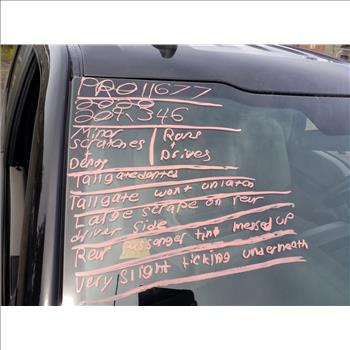 PRO11677
2020
207,346
Minor
scratches
+
Dents
Runs
+
Drives
Tailgate dented
Tailgate won't unlatch
Large scrape on rear
driver side
Rear passenger tint messed up
Very slight ticking underneath